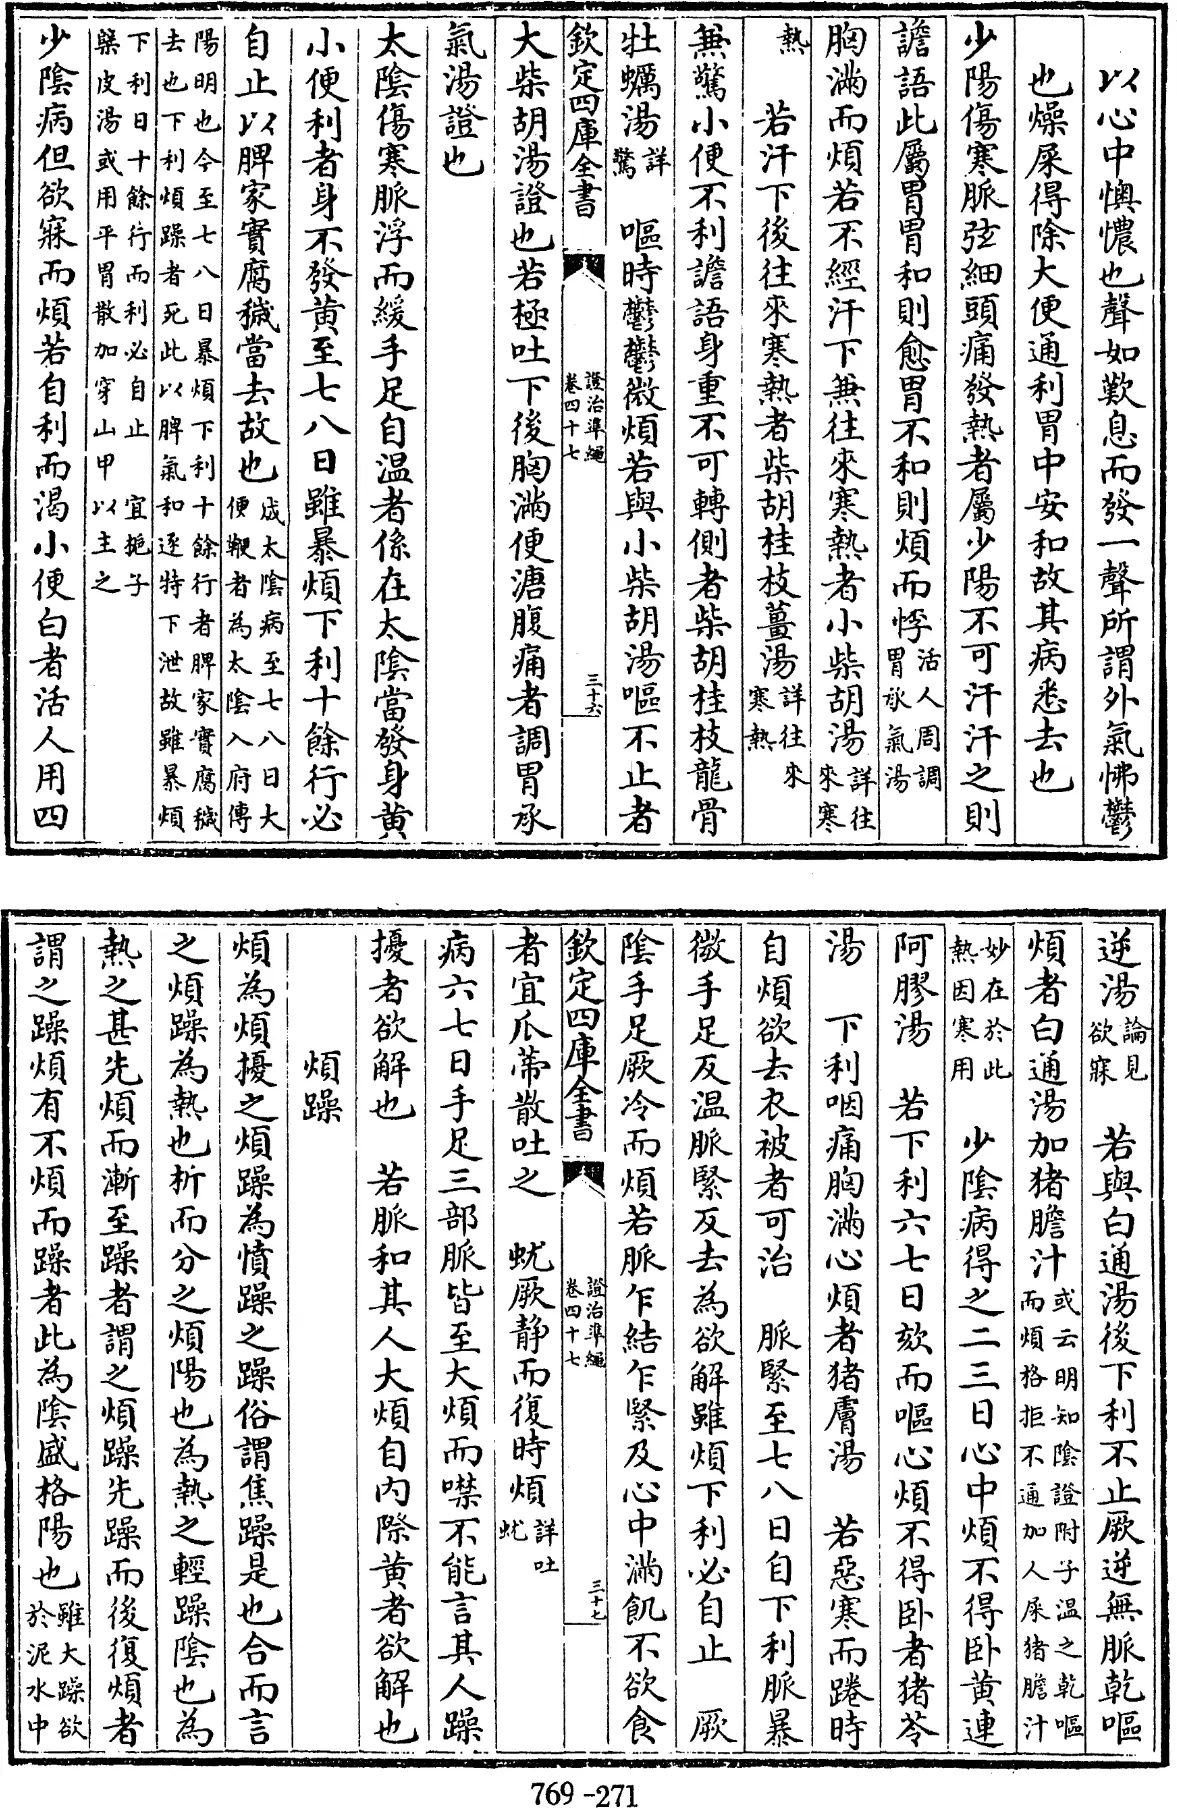 以心中懊憹也聲如歎息而發一聲所謂外氣怫鬱
也燥屎得除大便通利胃中安和故其病悉去也
少陽傷寒脈弦細頭痛發熱者屬少陽不可汗汗之則
譫語此屬胃胃和則愈胃不和則煩而悸活人周調胃承氣湯
胸滿而煩若不經汗下兼往來寒熱者小柴胡湯詳往來寒
熱　若汗下後往來寒熱者柴胡桂枝薑湯詳往來寒熱
兼驚小便不利譫語身重不可轉側者柴胡桂枝龍骨
牡蠣湯詳驚　嘔時鬱鬱微煩若與小柴胡湯嘔不止者
欽定四庫全書　證治準繩卷四十七　三十六
大柴胡湯證也若極吐下後胸滿便溏腹痛者調胃承
氣湯證也
太陰傷寒脈浮而緩手足自温者係在太陰當發身黄
小便利者身不發黄至七八日雖暴煩下利十餘行必
自止以脾家實腐穢當去故也成太陰病至七八日大便鞕者為太陰入府傳
陽明也今至七八日暴煩下利十餘行者脾家實腐穢去也下利煩躁者死此以脾氣和逐特下泄故雖暴煩
下利日十餘行而利必自止　宜梔子蘗皮湯或用平胃散加穿山甲以主之
少陰病但欲寐而煩若自利而渴小便白者活人用四
逆湯論見欲寐　若與白通湯後下利不止厥逆無脈乾嘔
煩者白通湯加猪膽汁或云明知陰證附子温之乾嘔而煩格拒不通加人尿猪膽汁
妙在於此熱因寒用　少陰病得之二三日心中煩不得卧黄連
阿膠湯　若下利六七日欬而嘔心煩不得卧者猪苓
湯　下利咽痛胸滿心煩者猪膚湯　若惡寒而踡時
自煩欲去衣被者可治　脈緊至七八日自下利脈暴
微手足反温脈緊反去為欲解雖煩下利必自止　厥
陰手足厥冷而煩若脈乍結乍緊及心中滿飢不欲食
欽定四庫全書　證治準繩卷四十七　三十七
者宜瓜蒂散吐之　蚘厥静而復時煩詳吐蚘
病六七日手足三部脈皆至大煩而噤不能言其人躁
擾者欲解也　若脈和其人大煩自内際黄者欲解也
煩躁
煩為煩擾之煩躁為憤躁之躁俗謂焦躁是也合而言
之煩躁為熱也析而分之煩陽也為熱之輕躁陰也為
熱之甚先煩而漸至躁者謂之煩躁先躁而後復煩者
謂之躁煩有不煩而躁者此為陰盛格陽也雖大躁欲於泥水中
769-271